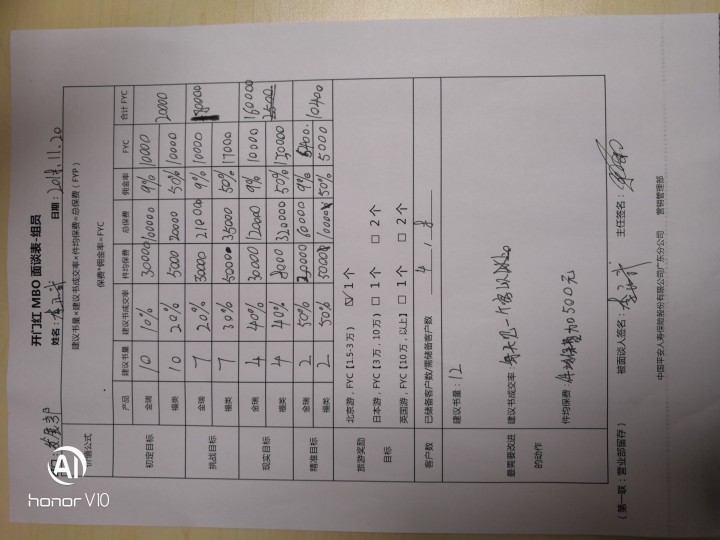 开门红 MBO 面谈表-组员
姓名: 日期: 2018.11.20
销售公式 建议书量×建议书成交率×件均保费=总保费(FYP)
保费*佣金率=FYC
产品 建议书量 建议书成交率 件均保费 总保费 佣金率 FYC 合计 FYC
初定目标 金瑞 10 10% 30000 100000 9% 10000 20000
福类 10 20% 5000 20000 50% 10000
挑战目标 金瑞 7 20% 30000 210000 9% 10000
福类 7 30% 5000 35000 50% 17000
现实目标 金瑞 4 40% 30000 120000 9% 10000 160000
福类 4 40% 8000 320000 50% 150000
精准目标 金瑞 2 50% 20000 60000 9% 5400 10400
福类 2 50% 50000 10000 50% 5000
旅游奖励目标 北京游,FYC【1.5-3万】 ☑ 1个
日本游,FYC【3万;10万】 □ 1个 □ 2个
英国游,FYC【10万,以上】 □ 1个 □ 2个
客户数 已储备客户数/需储备客户数 4 / 8
最需要改进的动作 建议书量:12
建议书成交率:
件均保费: 加500元
被面谈人签名: 主任签名:
(第一联:营业部留存) 中国平安人寿保险股份有限公司广东分公司 营销管理部
AI
honor V10